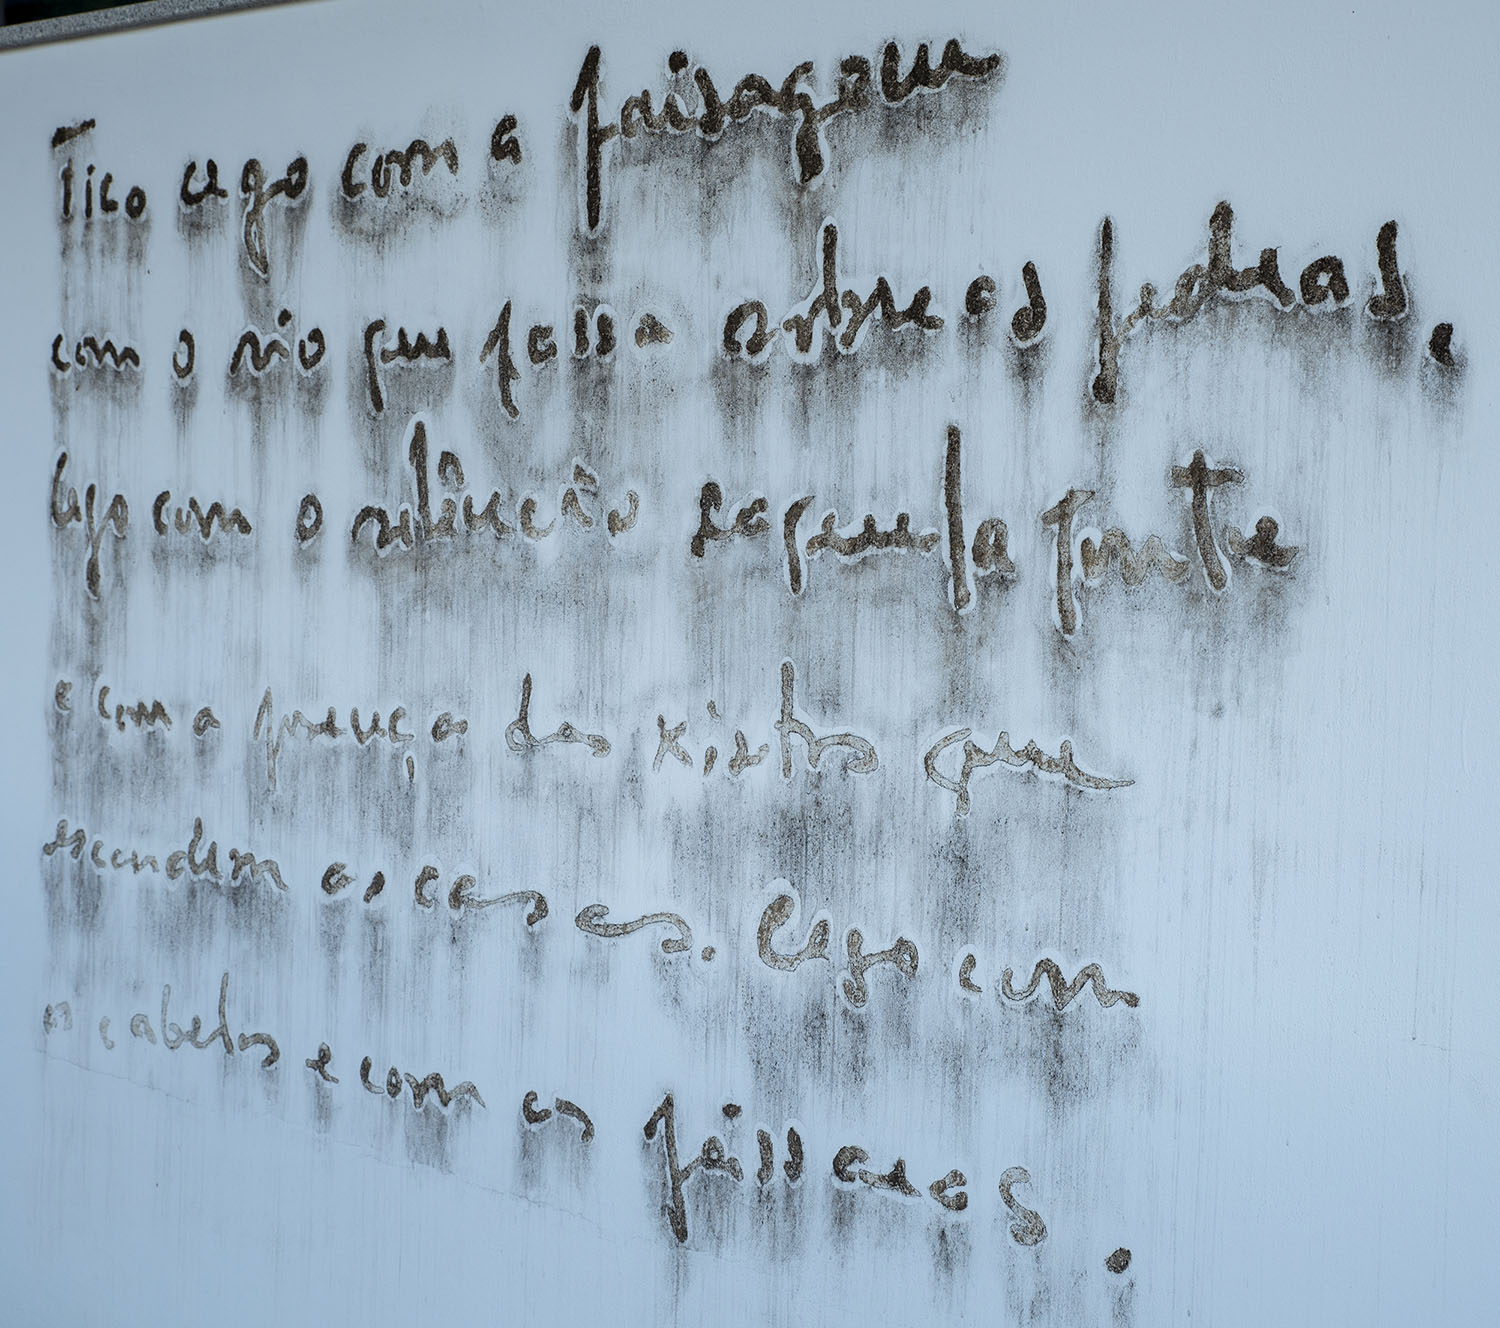 Fico cego com a paisagem
com o rio que passa sobre as pedras,
Cego com o silêncio naquela fonte
e com a presença dos xistos que
escondem as casas. Cego com
os cabelos e com os pássaros.